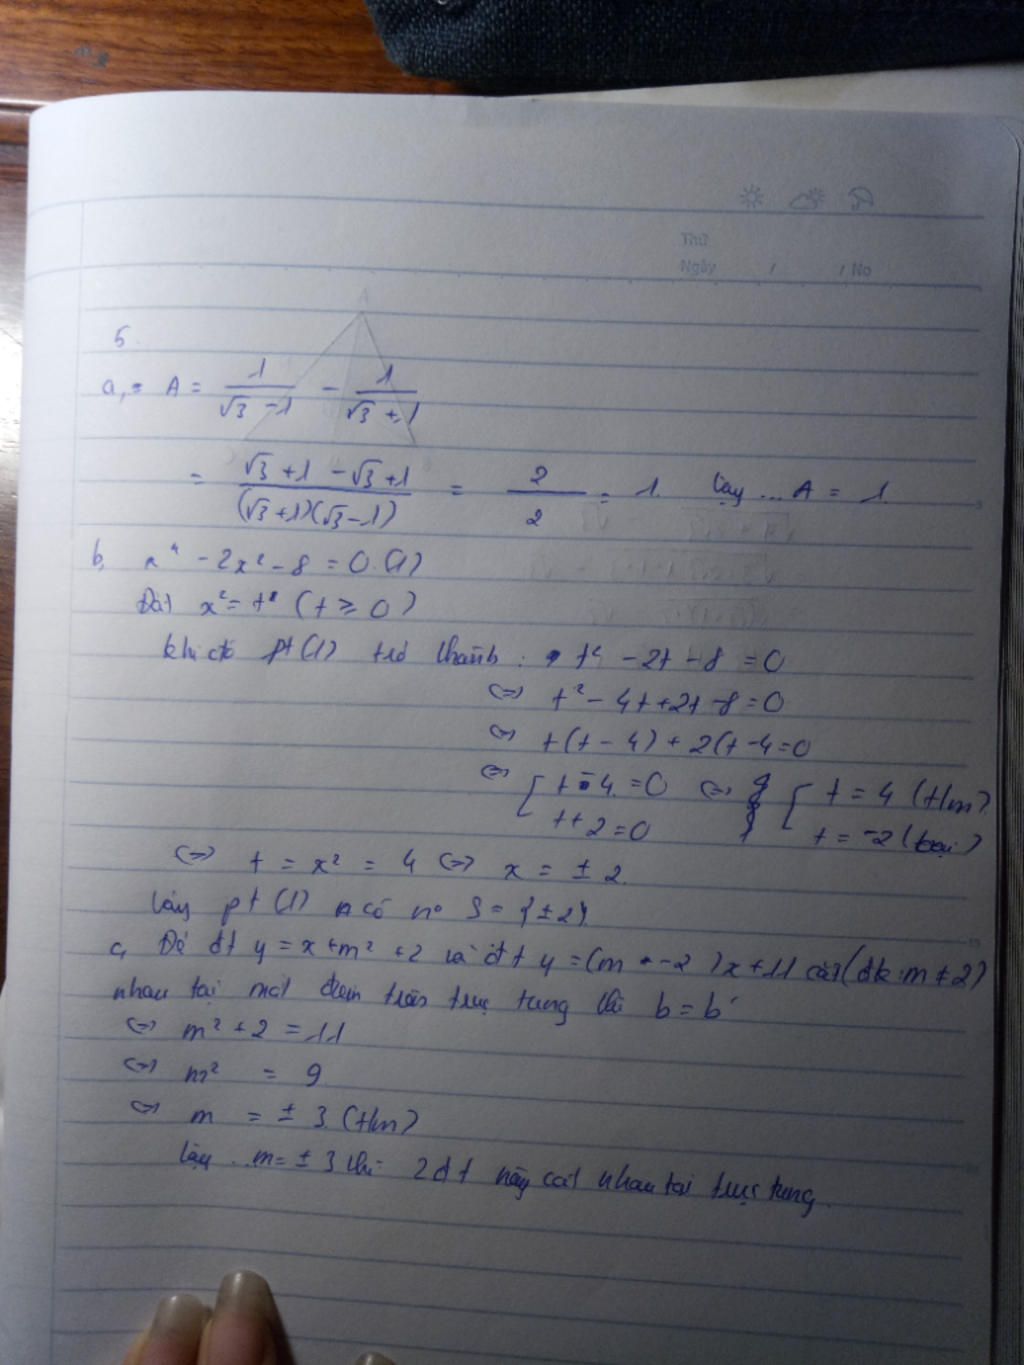 Thứ
Ngày / / No
5
a, A = 1/(√3 - 1) - 1/(√3 + 1)
= (√3 + 1 - √3 + 1)/((√3 + 1)(√3 - 1)) = 2/2 = 1. Vậy ... A = 1.
b, x⁴ - 2x² - 8 = 0 (1)
Đặt x² = t (t ≥ 0)
khi đó pt (1) trở thành : t² - 2t - 8 = 0
⇔ t² - 4t + 2t - 8 = 0
⇔ t(t - 4) + 2(t - 4 = 0
⇔ [ t - 4 = 0 ⇔ [ t = 4 (t/m)
t + 2 = 0 t = -2 (loại)
⇔ t = x² = 4 ⇔ x = ± 2.
Vậy pt (1) có n° S = {±2}
c, Để đt y = x + m² + 2 và đt y = (m - 2)x + 11 cắt (đk: m ≠ 2)
nhau tại một điểm trên trục tung thì b = b'
⇔ m² + 2 = 11
⇔ m² = 9
⇔ m = ± 3 (t/m)
Vậy ... m = ± 3 thì 2 đt này cắt nhau tại trục tung.